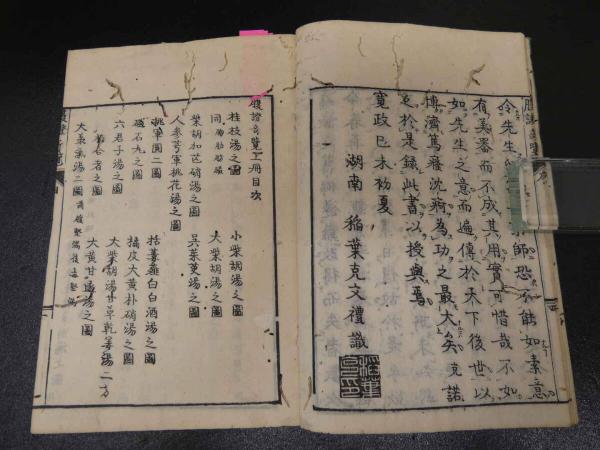 腹證奇覽序
令先生
師恐不能如素意
有美器而不成其用實可惜哉不如
如先生之意而遍傳於天下後世以
博濟篤癈沈痾為功之最大矣克諾
於是錄此書以授與焉
寬政己未初夏
湖南 稲葉克文禮識
腹證奇覽上冊目次
桂枝湯之圖
同
柴胡加芒硝湯之圖
人參芎軍桃花湯之圖
桃軍圓二圖
石丸之圖
六君子湯之圖
合者之圖
大承氣湯二圖
小柴胡湯之圖
大柴胡湯之圖
吳茱萸湯之圖
括蔞薤白白酒湯之圖
橘皮大黃朴硝湯之圖
大柴胡湯甘草乾姜湯二方
大黃甘遂湯之圖